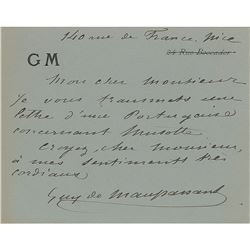 140 rue de France, Nice
24 Rue Boccador
GM
Mon cher Monsieur
Je vous transmets une
lettre d'une Portugaise
concernant Musotte.
Croyez, cher monsieur,
à mes sentiments très
cordiaux
Guy de Maupassant